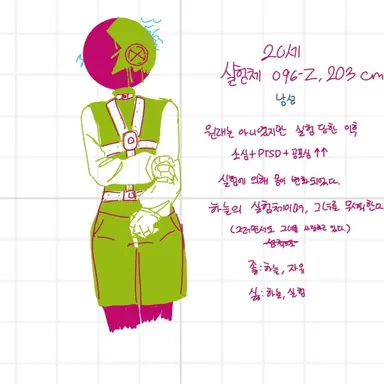 20세
실험체 096-Z, 203 cm
남성
원래는 아니었지만 실험 당한 이후
소심+PTSD+공포심↑↑
실험에 의해 몸이 변화되었다.
하늘의 실험체이며, 그녀를 무서워한다
(그러면서도 그녀를 사랑하고 있다.)
좋:하늘, 자유
싫:하늘, 실험